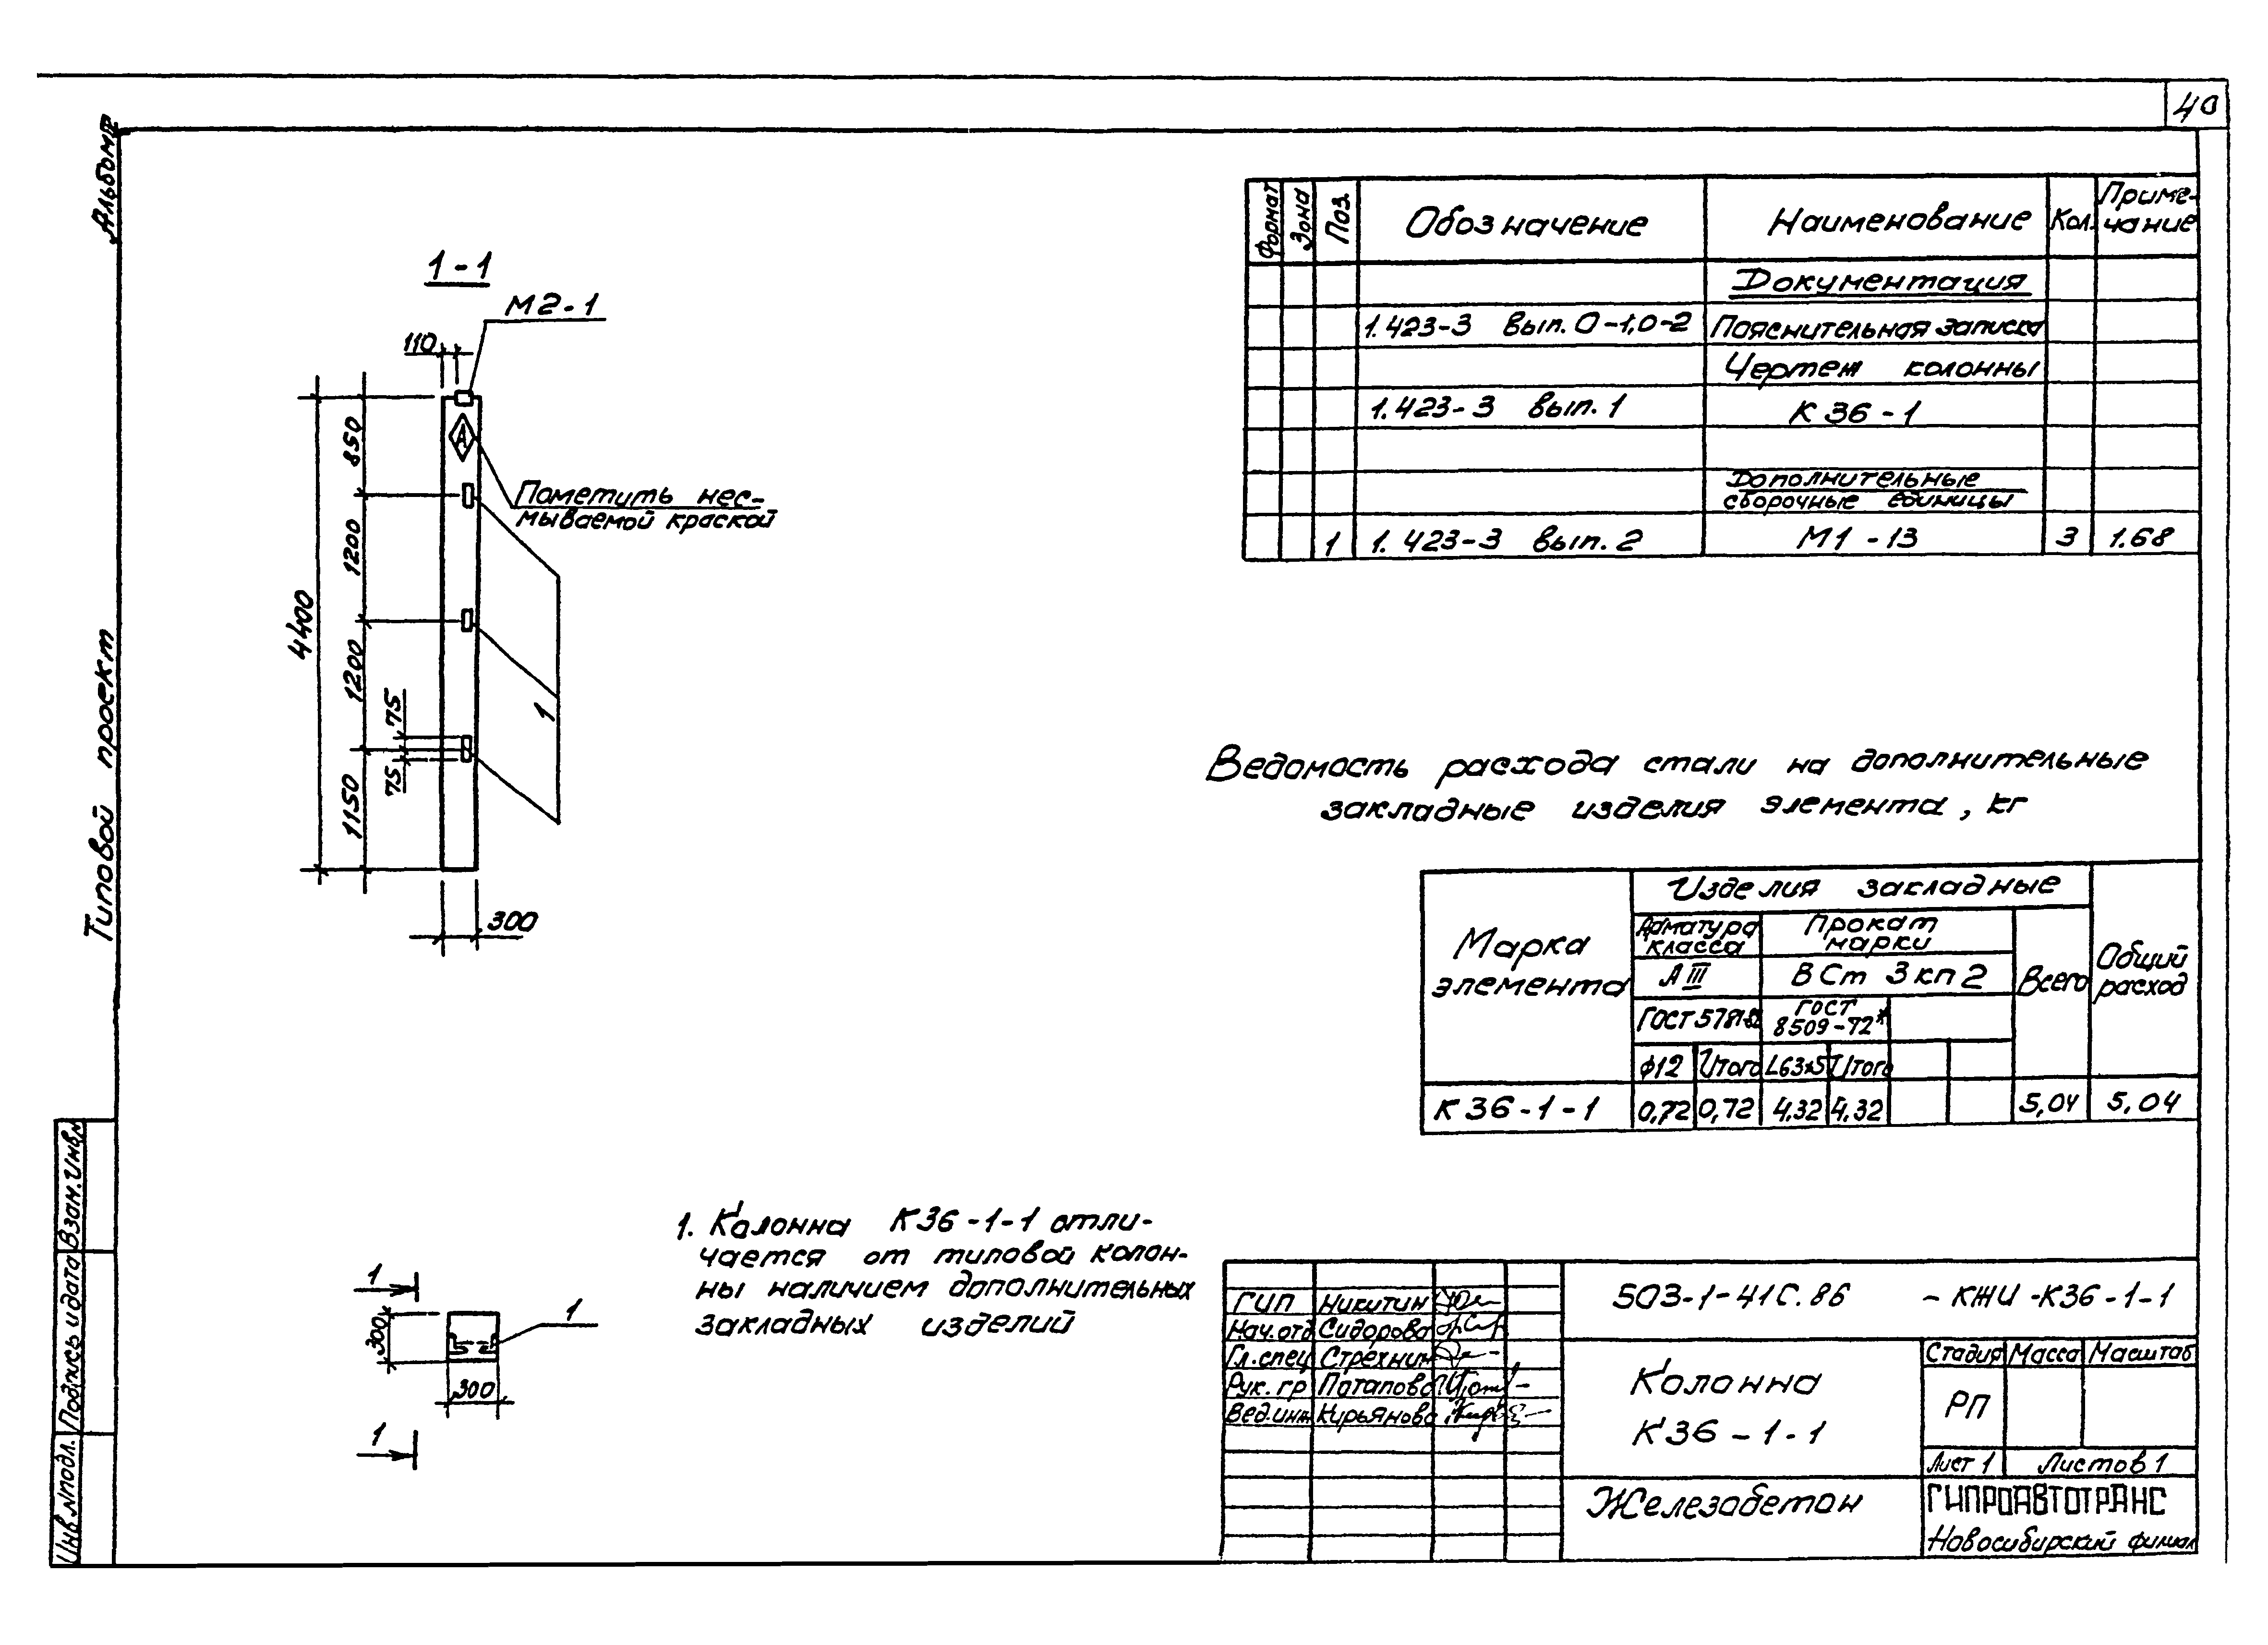 40
Альбом
Типовой проект
1-1
М2-1
110
850
1200
1200
1150
4400
75
75
А
Пометить нес-
мываемой краской
1
300
Формат Зона Поз. Обозначение Наименование Кол. Приме-
чание
Документация
1.423-3 вып. 0-1,0-2 Пояснительная записка
Чертеж колонны
1.423-3 вып. 1 К 36-1
Дополнительные
сборочные единицы
1 1.423-3 вып. 2 М1-13 3 1.68
Ведомость расхода стали на дополнительные
закладные изделия элемента, кг
Марка
элемента
Изделия закладные
Арматура
класса
Прокат
марки
А III
В Ст 3 кп 2
Всего
Общий
расход
ГОСТ 5781-82
ГОСТ
8509-72*
ф12 Итого L63х5 Итого
К 36-1-1 0,72 0,72 4.32 4.32 5,04 5,04
1. Колонна К36-1-1 отли-
чается от типовой колон-
ны наличием дополнительных
закладных изделий
1
1
300
300
1
Взам. Инв.N
Подпись и дата
Инв.N подл.
ГИП Никитин
Нач.отд Сидорова
Гл.спец Стрехнин
Рук. гр Потапова
Вед.инж Кирьянова
503-1-41С.86 - КЖИ -К36-1-1
Колонна
К36-1-1
Стадия Масса Масштаб
РП
Лист 1 Листов 1
Железобетон
ГИПРОАВТОТРАНС
Новосибирский филиал